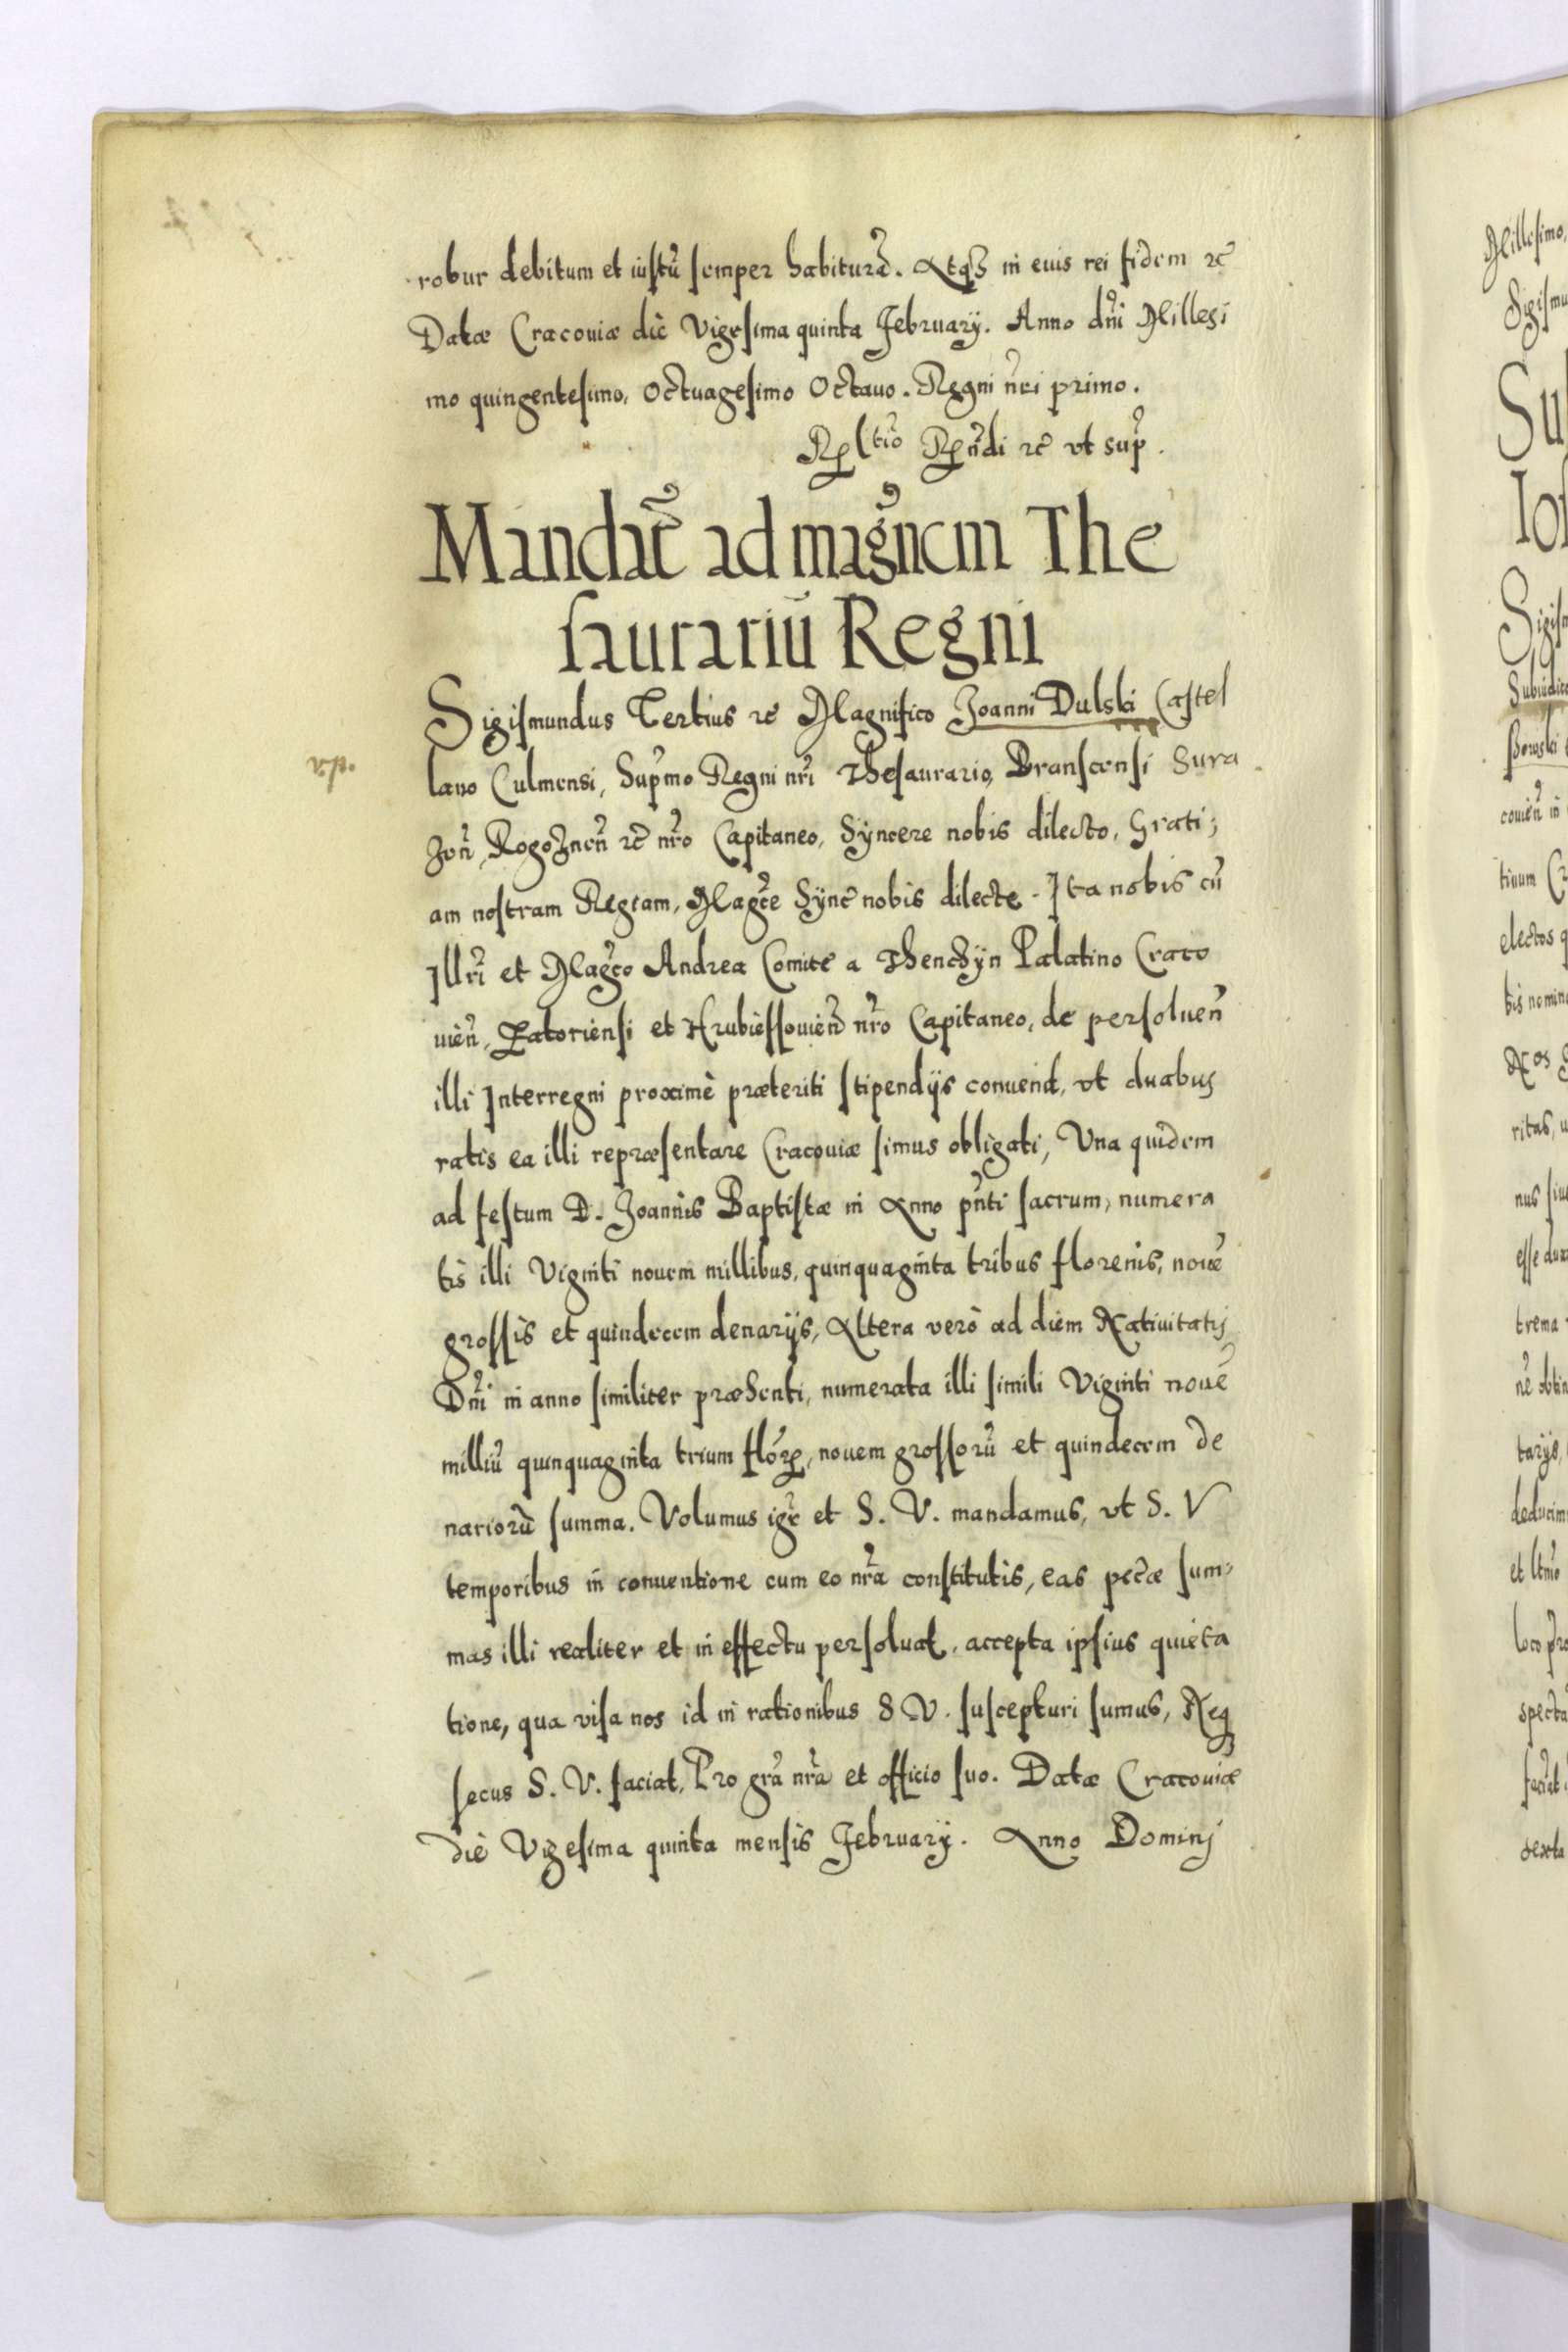 robur debitum et iustũ semper habiturã. Atqꝫ in eius rei fidem ꝛc̃
Datæ Cracouiæ die Vigesima quinta February. Anno dñi Millesi
mo quingentesimo, Octuagesimo Octauo. Regni ñri primo.
ꝛc̃ vt sup̃.
Mandat̃ ad magñcm The
saurariũ Regni
Sigismundus Tertius ꝛc̃ Magnifico Joanni Dulski Castel
lano Culmensi, Sup̃mo Regni nr̃i Thesaurario, Branscensi Sura
Rogoznen̄ ꝛc̃ nr̃o Capitaneo, Syncere nobis dilecto, Grati;
am nostram Regiam, Mag̃ce Synč nobis dilecte. Ita nobis cũ
Illr̃i et Mag̃co Andrea Comite a Thenchÿn Palatino Craco
uieñ, Zatoriensi et Hrubiessouieñ nr̃o Capitaneo, de persolueñ
illi Interregni proximè præteriti stipendijs conuenit, vt duabus
ratis ea illi repræsentare Cracouiæ simus obligati, Una quidem
ad festum D. Joannis Baptistæ in Anno pñti sacrum, numera
tis illi Viginti nouem millibus, quinquaginta tribus florenis, nouẽ
grossis et quindecem denarijs, Altera verò ad diem Natiuitatis
Dñi in anno similiter præsenti, numerata illi simili Viginti nouẽ
milliũ quinquaginta trium flor̃, nouem grossorũ et quindecem de
nariorũ summa. Volumus igr̃ et S. V. mandamus, vt S. V
temporibus in conuentione cum eo nr̃a constitutis, eas pec̃æ sum-
mas illi realiter et in effectu persoluat, accepta ipsius quieta
tione, qua visa nos id in rationibus S V. suscepturi sumus, Neq
secus S. V. faciat, Pro gr̃a nr̃a et officio suo. Datæ Cracouiæ
die Vigesima quinta mensis February. Anno Dominj